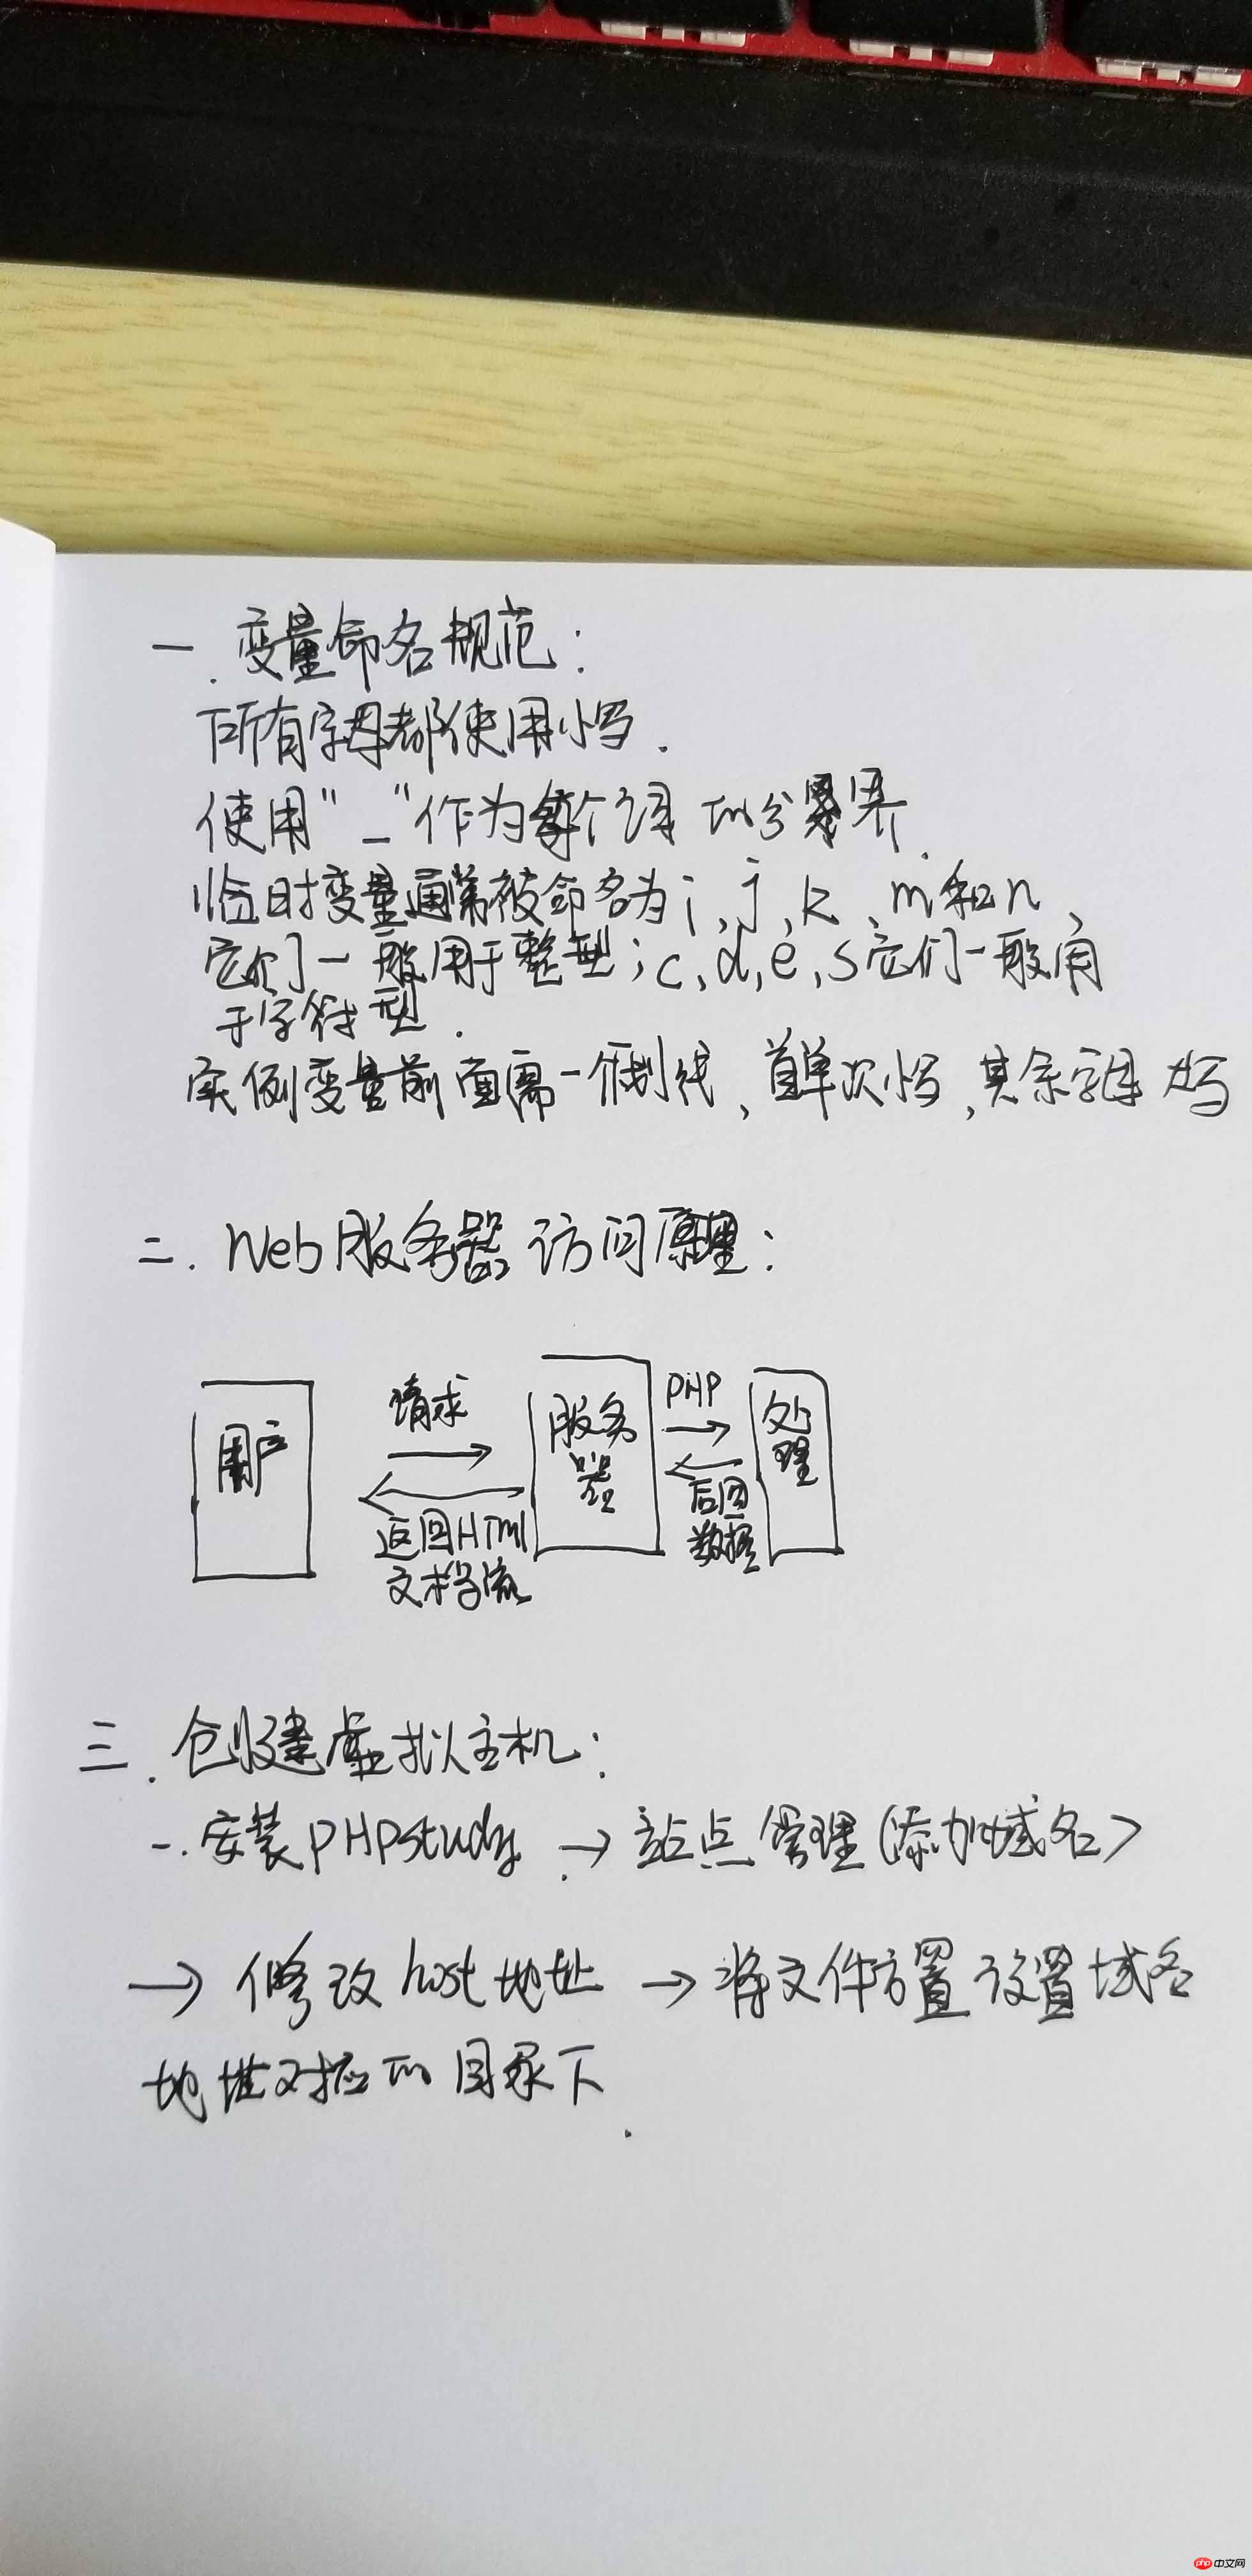 一.变量命名规范:
所有字母都使用小写.
使用"_"作为每个词的分界.
临时变量通常被命名为i,j,k,m和n,
它们一般用于整型;c,d,e,s它们一般用
于字符型.
实例变量前面需一个下划线,首单次小写,其余字母大写
二.Web服务器访问原理:
用户
请求
返回HTml
文档流
服务
器
PHP
后回
数据
处
理
三.创建虚拟主机:
一.安装PHPstudy.→站点管理(添加域名>
→修改host地址→将文件方置设置域名
地址对应的目录下.
php 中文网